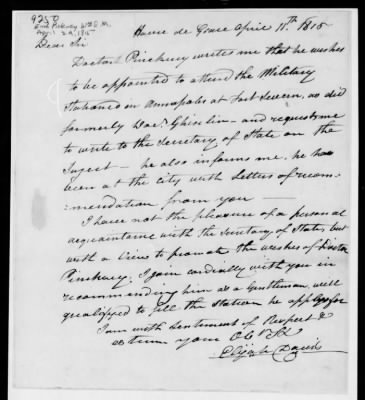 9250
April 29, 1815
Havre de Grace April 11th 1815
Dear Sir
Doctor Pinckney writes me that he wishes
to be appointed to attend the Military
Stationed in Annapolis at Fort Severn, as did
formerly Doc. Ghiselin - and requests me
to write to the Secretary of State on the
Suject - he also informs me, he has
been at the City with Letters of recom-
:mendation from you -
I have not the pleasure of a personal
acquaintance with the Secretary of State, but
with a view to promote the wishes of Doctor
Pinckney, I join cordially with you in
recommending him as a Gentleman, well
qualified to fill the station he applys for
I am with Sentiment of Respect &
esteem your Ob St
Elijah Davis